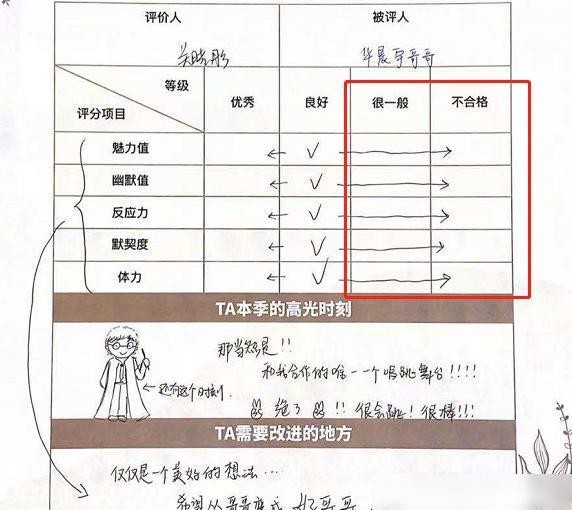 评价人 被评人
关晓彤 华晨宇哥哥
等级 优秀 良好 很一般 不合格
评分项目
魅力值
幽默值
反应力
默契度
体力
TA本季的高光时刻
那当然是!!
和我合作的唯一一个唱跳舞台!!!!
←还有这个时刻
绝了 !! 很会跳! 很棒!!!
TA需要改进的地方
仅仅是一个美好的想法...
希望从哥哥变成 好哥哥.